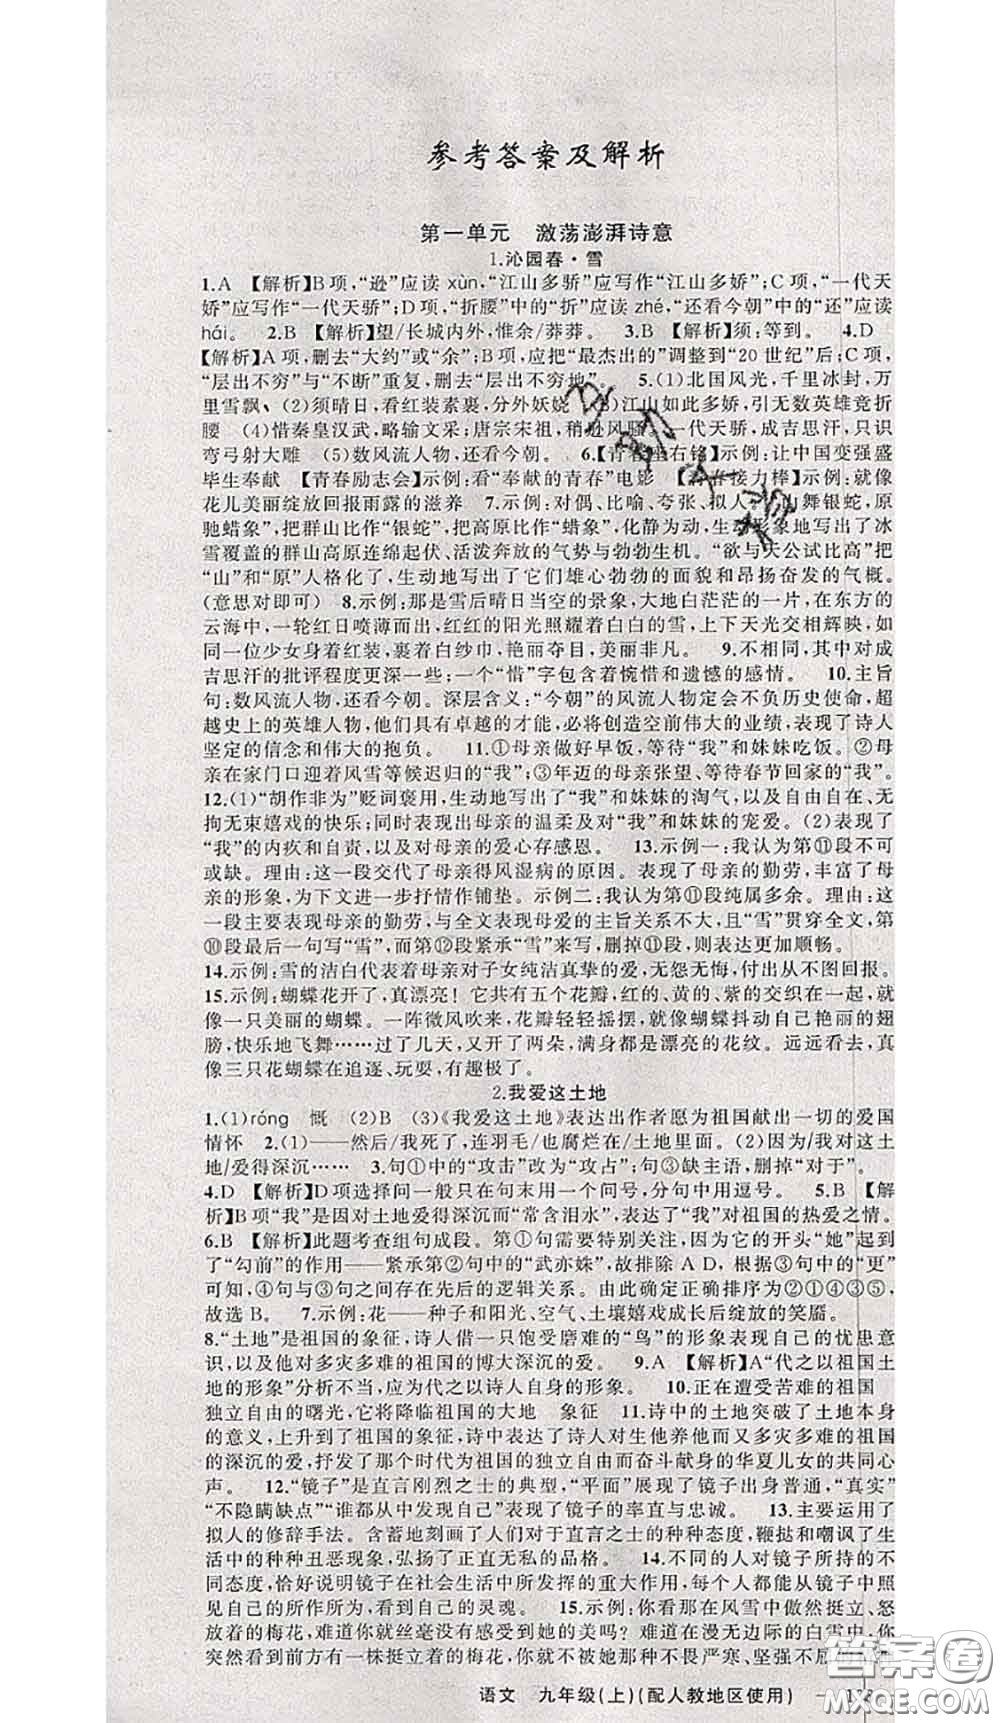 参考答案及解析
第一单元　激荡澎湃诗意
1.沁园春·雪
1.A　【解析】B项,“逊”应读xùn,“江山多骄”应写作“江山多娇”;C项,“一代天
娇”应写作“一代天骄”;D项,“折腰”中的“折”应读zhé,“还看今朝”中的“还”应读
hái。　2.B　【解析】望/长城内外,惟余/莽莽。　3.B　【解析】须:等到。　4.D
【解析】A项,删去“大约”或“余”;B项,应把“最杰出的”调整到“20世纪”后;C项,
“层出不穷”与“不断”重复,删去“层出不穷地”。　5.(1)北国风光,千里冰封,万
里雪飘　(2)须晴日,看红装素裹,分外妖娆　(3)江山如此多娇,引无数英雄竞折
腰　(4)惜秦皇汉武,略输文采;唐宗宋祖,稍逊风骚。一代天骄,成吉思汗,只识
弯弓射大雕　(5)数风流人物,还看今朝。　6.【青春座右铭】示例:让中国变强盛
毕生奉献　【青春励志会】示例:看“奉献的青春”电影　【青春接力棒】示例:就像
花儿美丽绽放回报雨露的滋养　7.示例:对偶、比喻、夸张、拟人。“山舞银蛇,原
驰蜡象”,把群山比作“银蛇”,把高原比作“蜡象”,化静为动,生动形象地写出了冰
雪覆盖的群山高原连绵起伏、活泼奔放的气势与勃勃生机。“欲与天公试比高”把
“山”和“原”人格化了,生动地写出了它们雄心勃勃的面貌和昂扬奋发的气概。
(意思对即可)　8.示例:那是雪后晴日当空的景象,大地白茫茫的一片,在东方的
云海中,一轮红日喷薄而出,红红的阳光照耀着白白的雪,上下天光交相辉映,如
同一位少女身着红装,裹着白纱巾,艳丽夺目,美丽非凡。　9.不相同,其中对成
吉思汗的批评程度更深一些;一个“惜”字包含着惋惜和遗憾的感情。　10.主旨
句:数风流人物,还看今朝。深层含义:“今朝”的风流人物定会不负历史使命,超
越史上的英雄人物,他们具有卓越的才能,必将创造空前伟大的业绩,表现了诗人
坚定的信念和伟大的抱负。　11.①母亲做好早饭,等待“我”和妹妹吃饭。②母
亲在家门口迎着风雪等候迟归的“我”;③年迈的母亲张望、等待春节回家的“我”。
12.(1)“胡作非为”贬词褒用,生动地写出了“我”和妹妹的淘气,以及自由自在、无
拘无束嬉戏的快乐;同时表现出母亲的温柔及对“我”和妹妹的宠爱。(2)表现了
“我”的内疚和自责,以及对母亲的爱心存感恩。　13.示例一:我认为第⑪段不可
或缺。理由:这一段交代了母亲得风湿病的原因。表现了母亲的勤劳,丰富了母
亲的形象,为下文进一步抒情作铺垫。示例二:我认为第⑪段纯属多余。理由:这
一段主要表现母亲的勤劳,与全文表现母爱的主旨关系不大,且“雪”贯穿全文,第
⑩段最后一句写“雪”,而第⑫段紧承“雪”来写,删掉⑪段,则表达更加顺畅。
14.示例:雪的洁白代表着母亲对子女纯洁真挚的爱,无怨无悔,付出从不图回报。
15.示例:蝴蝶花开了,真漂亮！它共有五个花瓣,红的、黄的、紫的交织在一起,就
像一只美丽的蝴蝶。一阵微风吹来,花瓣轻轻摇摆,就像蝴蝶抖动自己艳丽的翅
膀,快乐地飞舞……过了几天,又开了两朵,满身都是漂亮的花纹。远远看去,真
像三只花蝴蝶在追逐、玩耍,有趣极了。
2.我爱这土地
1.(1)róng　慨　(2)B　(3)《我爱这土地》表达出作者愿为祖国献出一切的爱国
情怀　2.(1)——然后/我死了,连羽毛/也腐烂在/土地里面。(2)因为/我对这土
地/爱得深沉……　3.句①中的“攻击”改为“攻占”;句③缺主语,删掉“对于”。
4.D　【解析】D项选择问一般只在句末用一个问号,分句中用逗号。　5.B　【解
析】B项“我”是因对土地爱得深沉而“常含泪水”,表达了“我”对祖国的热爱之情。
6.B　【解析】此题考查组句成段。第①句需要特别关注,因为它的开头“她”起到
了“勾前”的作用——紧承第②句中的“武亦姝”,故排除A D,根据③句中的“更”
可知,④句与③句之间存在先后的逻辑关系。由此确定正确排序为②①④③⑤,
故选B。　7.示例:花——种子和阳光、空气、土壤嬉戏成长后绽放的笑靥。
8.“土地”是祖国的象征,诗人借一只饱受磨难的“鸟”的形象表现自己的忧患意
识,以及他对多灾多难的祖国的博大深沉的爱。　9.A　【解析】A“代之以祖国土
地的形象”分析不当,应为代之以诗人自身的形象。　10.正在遭受苦难的祖国
独立自由的曙光,它将降临祖国的大地　象征　11.诗中的土地突破了土地本身
的意义,上升到了祖国的象征,诗中表达了诗人对生他养他而又多灾多难的祖国
的深沉的爱,反映了那个时代为祖国的独立自由而奋斗献身的华夏儿女的共同心
声。　12.“镜子”是直言刚烈之士的典型,“平面”展现了镜子出身普通,“真实”
“不隐瞒缺点”“谁都从中发现自己”表现了镜子的率直与忠诚。　13.主要运用了
拟人的修辞手法。含蓄地刻画了人们对于直言之士的种种态度,鞭挞和嘲讽了生
活中的种种丑恶现象,弘扬了正直无私的品格。　14.不同的人对镜子所持的不
同态度,恰好说明镜子在社会生活中所发挥的重大作用,每个人都能从镜子中照
见自己的所作所为,看到自己的灵魂。　15.示例:你看那在风雪中傲然挺立、怒
放着的梅花,难道你就丝毫没有感受到她的美吗?难道在漫无边际的白雪中,你
突然看到前方有一株挺立着的梅花,你就不被她那种不畏严寒、坚强不屈的
语文　九年级(上)(配人教地区使用)
答案圈
MXQE.COM